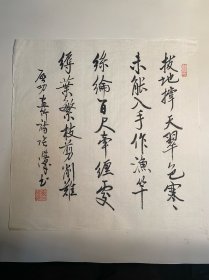 拔地撑天翠色寒
未能入手作渔竿
丝纶百尺牵缠处
得叶繁枝剪削难
启功
书